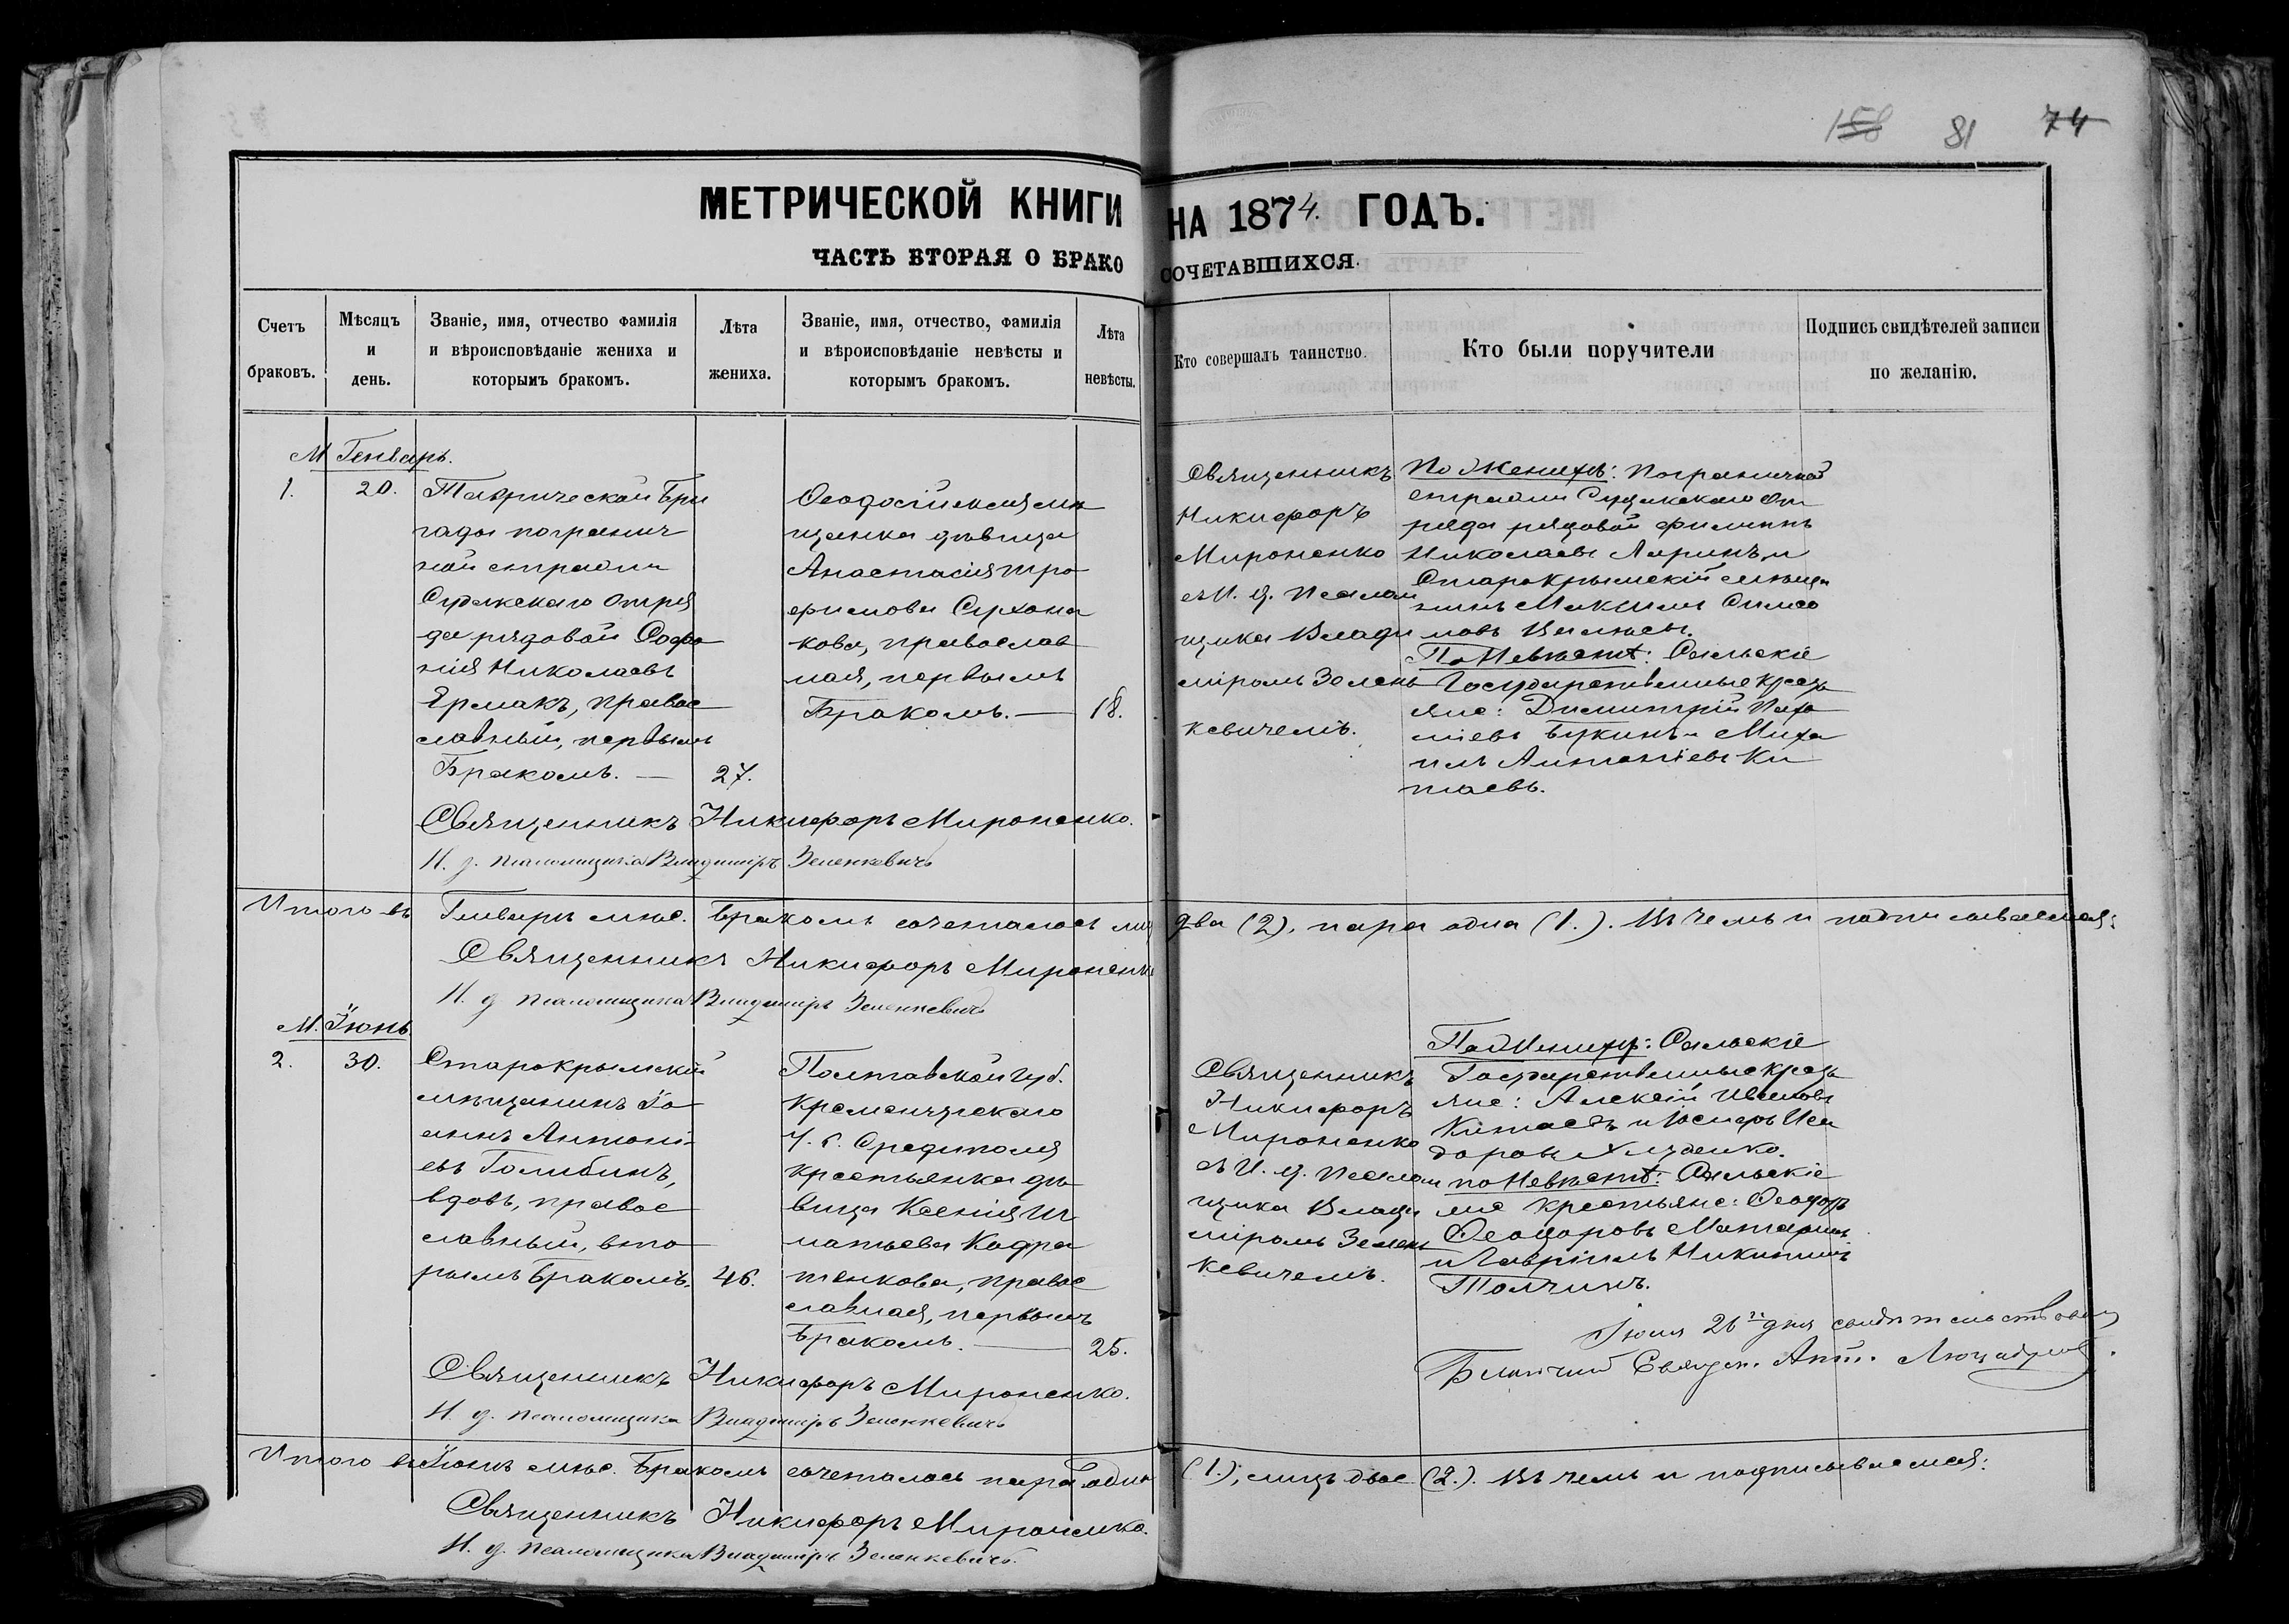 158 81 74
МЕТРИЧЕСКОЙ КНИГИ НА 1874. ГОДЪ.
ЧАСТЬ ВТОРАЯ О БРАКОСОЧЕТАВШИХСЯ.
Счетъ браковъ.
Мѣсяцъ и день.
Званіе, имя, отчество фамилія
и вѣроисповѣданіе жениха и
которымъ бракомъ.
Лѣта жениха.
Званіе, имя, отчество, фамилія
и вѣроисповѣданіе невѣсты и
которымъ бракомъ.
Лѣта невѣсты.
Кто совершалъ таинство.
Кто были поручители
Подпись свидѣтелей записи
по желанію.
М. Генварь.
1.
20.
Таврической Бри
гады погранич
ной стражи
Судакскаго Отря
да рядовой Софо
нія Николаевъ
Ермакъ, правос
славный, первымъ
Бракомъ. —
27.
Ѳеодосійская мѣ
щанка дѣвица
Анастасія Тро
фимова Сухона
кова, православ
ная, первымъ
Бракомъ. —
18.
Священникъ
Никифоръ
Мироненко
съ И. д. Псалом
щика Влади
міромъ Зелен
кевичемъ.
По Женихѣ: Пограничной
стражи Судакскаго От
ряда рядовой Филиппъ
Николаевъ Ларинъ, и
Старокрымскій мѣща
нинъ Максимъ Симео
новъ
По Невѣстѣ: Сальскіе
Государственные крестья
яне: Димитрій
Букинъ и Миха
илъ Антоніевъ Ки
таевъ.
Священникъ Никифоръ Мироненко.
И. д. псаломщика Владиміръ Зеленкевичъ
Итого въ Генварѣ мѣс. Бракомъ сочеталось лиц два (2), пара одна (1.). Въ чемъ и подписываемся:
Священникъ Никифоръ Мироненко
И. д. псаломщика Владиміръ Зеленкевичъ
М. Іюнь
2.
30.
Старокрымскій
мѣщанинъ Іо
аннъ Антоні-
евъ Голибинъ,
вдовъ, правос
славный, вто
рымъ Бракомъ.
46.
Полтавской Губ.
Кременчугскаго
У. с.
крестьянка дѣ
вица Ксенія Иг
натьева
правос
славная, первымъ
Бракомъ. —
25.
Священникъ
Никифоръ
Мироненко
съ И. д. Псалом
щика Влади
міромъ Зелен
кевичемъ.
По Женихѣ: Сальскіе
Государственные крестья
яне: Алексій Ивановъ
Китаевъ и Іосифъ Иси
доровъ
по Невѣстѣ: Сальскіе
крестьяне: Ѳеодоръ
Ѳеодоровъ
и Гавріилъ Никитинъ
Толчинъ.
Іюня 26го дня свидѣтельствовалъ
Благочинный Священ.
Священникъ Никифоръ Мироненко.
И. д. псаломщика Владиміръ Зеленкевичъ
Итого въ Іюнѣ мѣс. Бракомъ сочеталось пара одна (1.), лицъ двое (2.). Въ чемъ и подписываемся:
Священникъ Никифоръ Мироненко.
И. д. псаломщика Владиміръ Зеленкевичъ.